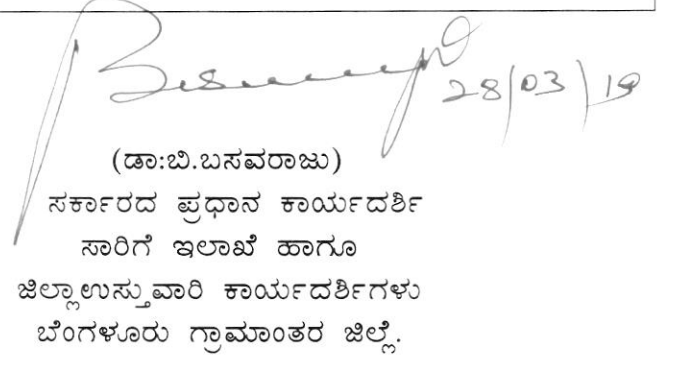 28/03/19
(ಡಾ:ಬಿ.ಬಸವರಾಜು)
ಸರ್ಕಾರದ ಪ್ರಧಾನ ಕಾರ್ಯದರ್ಶಿ
ಸಾರಿಗೆ ಇಲಾಖೆ ಹಾಗೂ
ಜಿಲ್ಲಾಉಸ್ತುವಾರಿ ಕಾರ್ಯದರ್ಶಿಗಳು
ಬೆಂಗಳೂರು ಗ್ರಾಮಾಂತರ ಜಿಲ್ಲೆ.